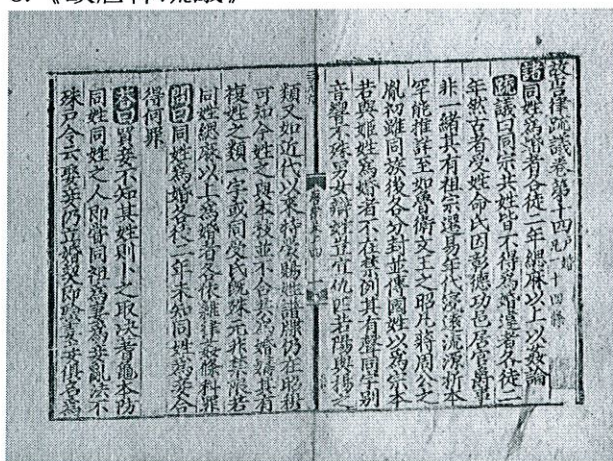 故唐律疏議卷第十四 戶婚 凡一十四條
諸同姓為婚者各徒二年緦麻以上以姦論
疏議曰同宗共姓皆不得為婚違者各徒二
年然古者受姓命氏因彰德功邑居官爵事
非一緒其有祖宗遷易年代寖遠流源析本
罕能推詳至如魯衛文王之昭凡蔣周公之
胤初雖同族後各分封並傳國姓以為宗本
若與姬姓為婚者不在禁例其有聲同字別
音響不殊男女辯姓豈宜仇匹若陽與揚之
類又如近代以來特蒙賜姓譜牒仍在昭穆
可知今姓之與本枝並不合共為婚媾其有
複姓之類一字或同受氏既殊元非禁限若
同姓緦麻以上為婚者各依雜律姦條科罪
問曰同姓為婚各徒二年未知同姓為妾合
得何罪
答曰買妾不知其姓則卜之取決蓍龜本防
同姓同姓之人即嘗同祖為妻為妾亂法不
殊戶令云娶妾仍立婚契即驗妻妾俱名為